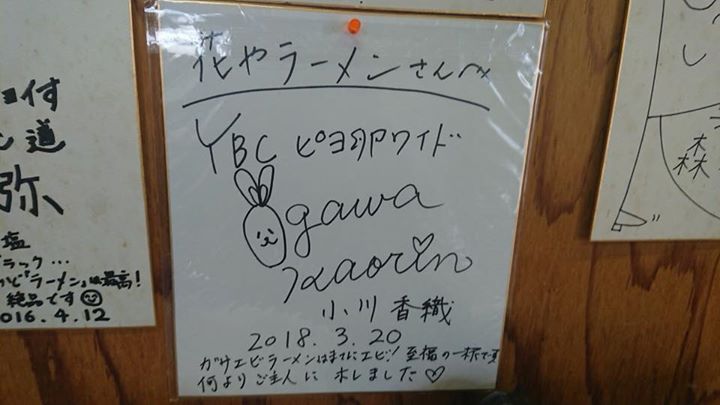 ョ付
し道
弥
塩
ラック…
かど"ラーメン"は最高!
絶品です
2016.4.12
花やラーメンさんへ
YBC ピヨ卵ワイド
Ogawa
Kaorin
小川 香織
2018.3.20
がけエビラーメンはまさにエビ!至福の一杯です
何よりご主人に ホレました♡
い
森